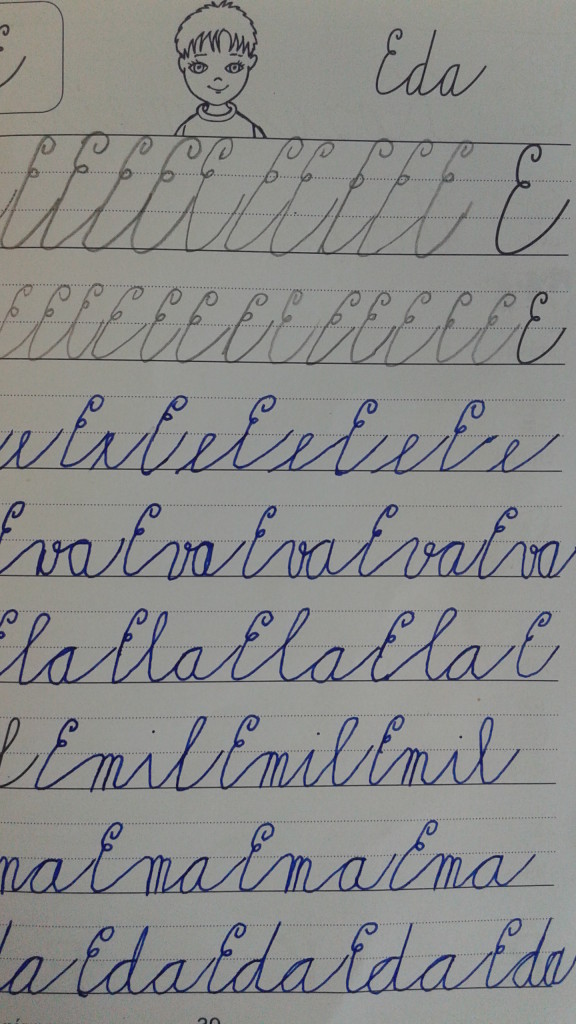 Eda
E E E E E E E E E E E
E E E E E E E E E E E E E E
e E e E e E e E e E e
Eva Eva Eva Eva Eva
Ela Ela Ela Ela E
l Emil Emil Emil
ma Ema Ema Ema
a Eda Eda Eda Eda